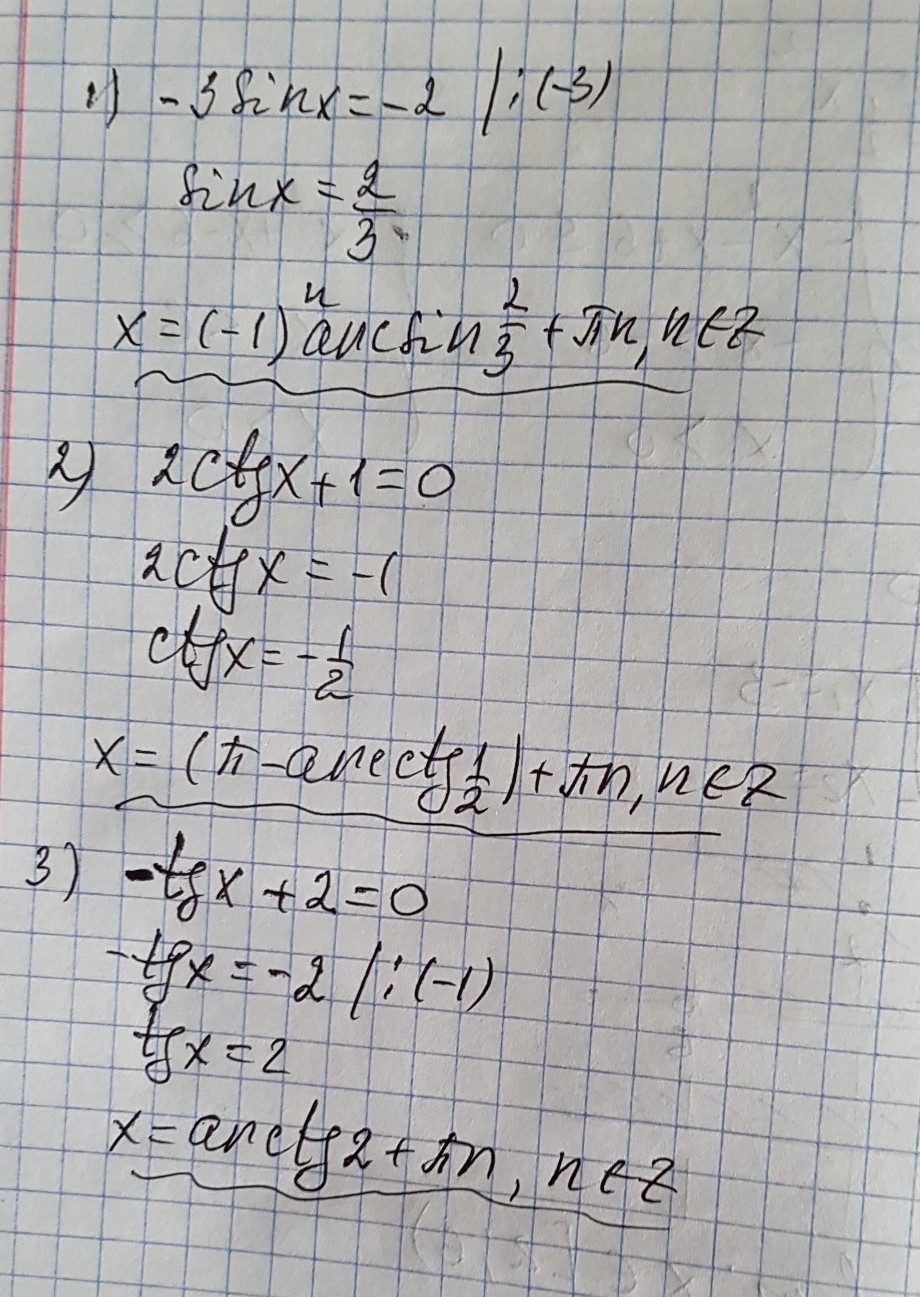 1) -3sinx=-2 /:(-3)
sinx=2/3
x=(-1)ⁿarcsin2/3+πn, n∈Z
2) 2ctgx+1=0
2ctgx=-1
ctgx=-1/2
x=(π-arcctg1/2)+πn, n∈Z
3) -tgx+2=0
-tgx=-2 /:(-1)
tgx=2
x=arctg2+πn, n∈Z